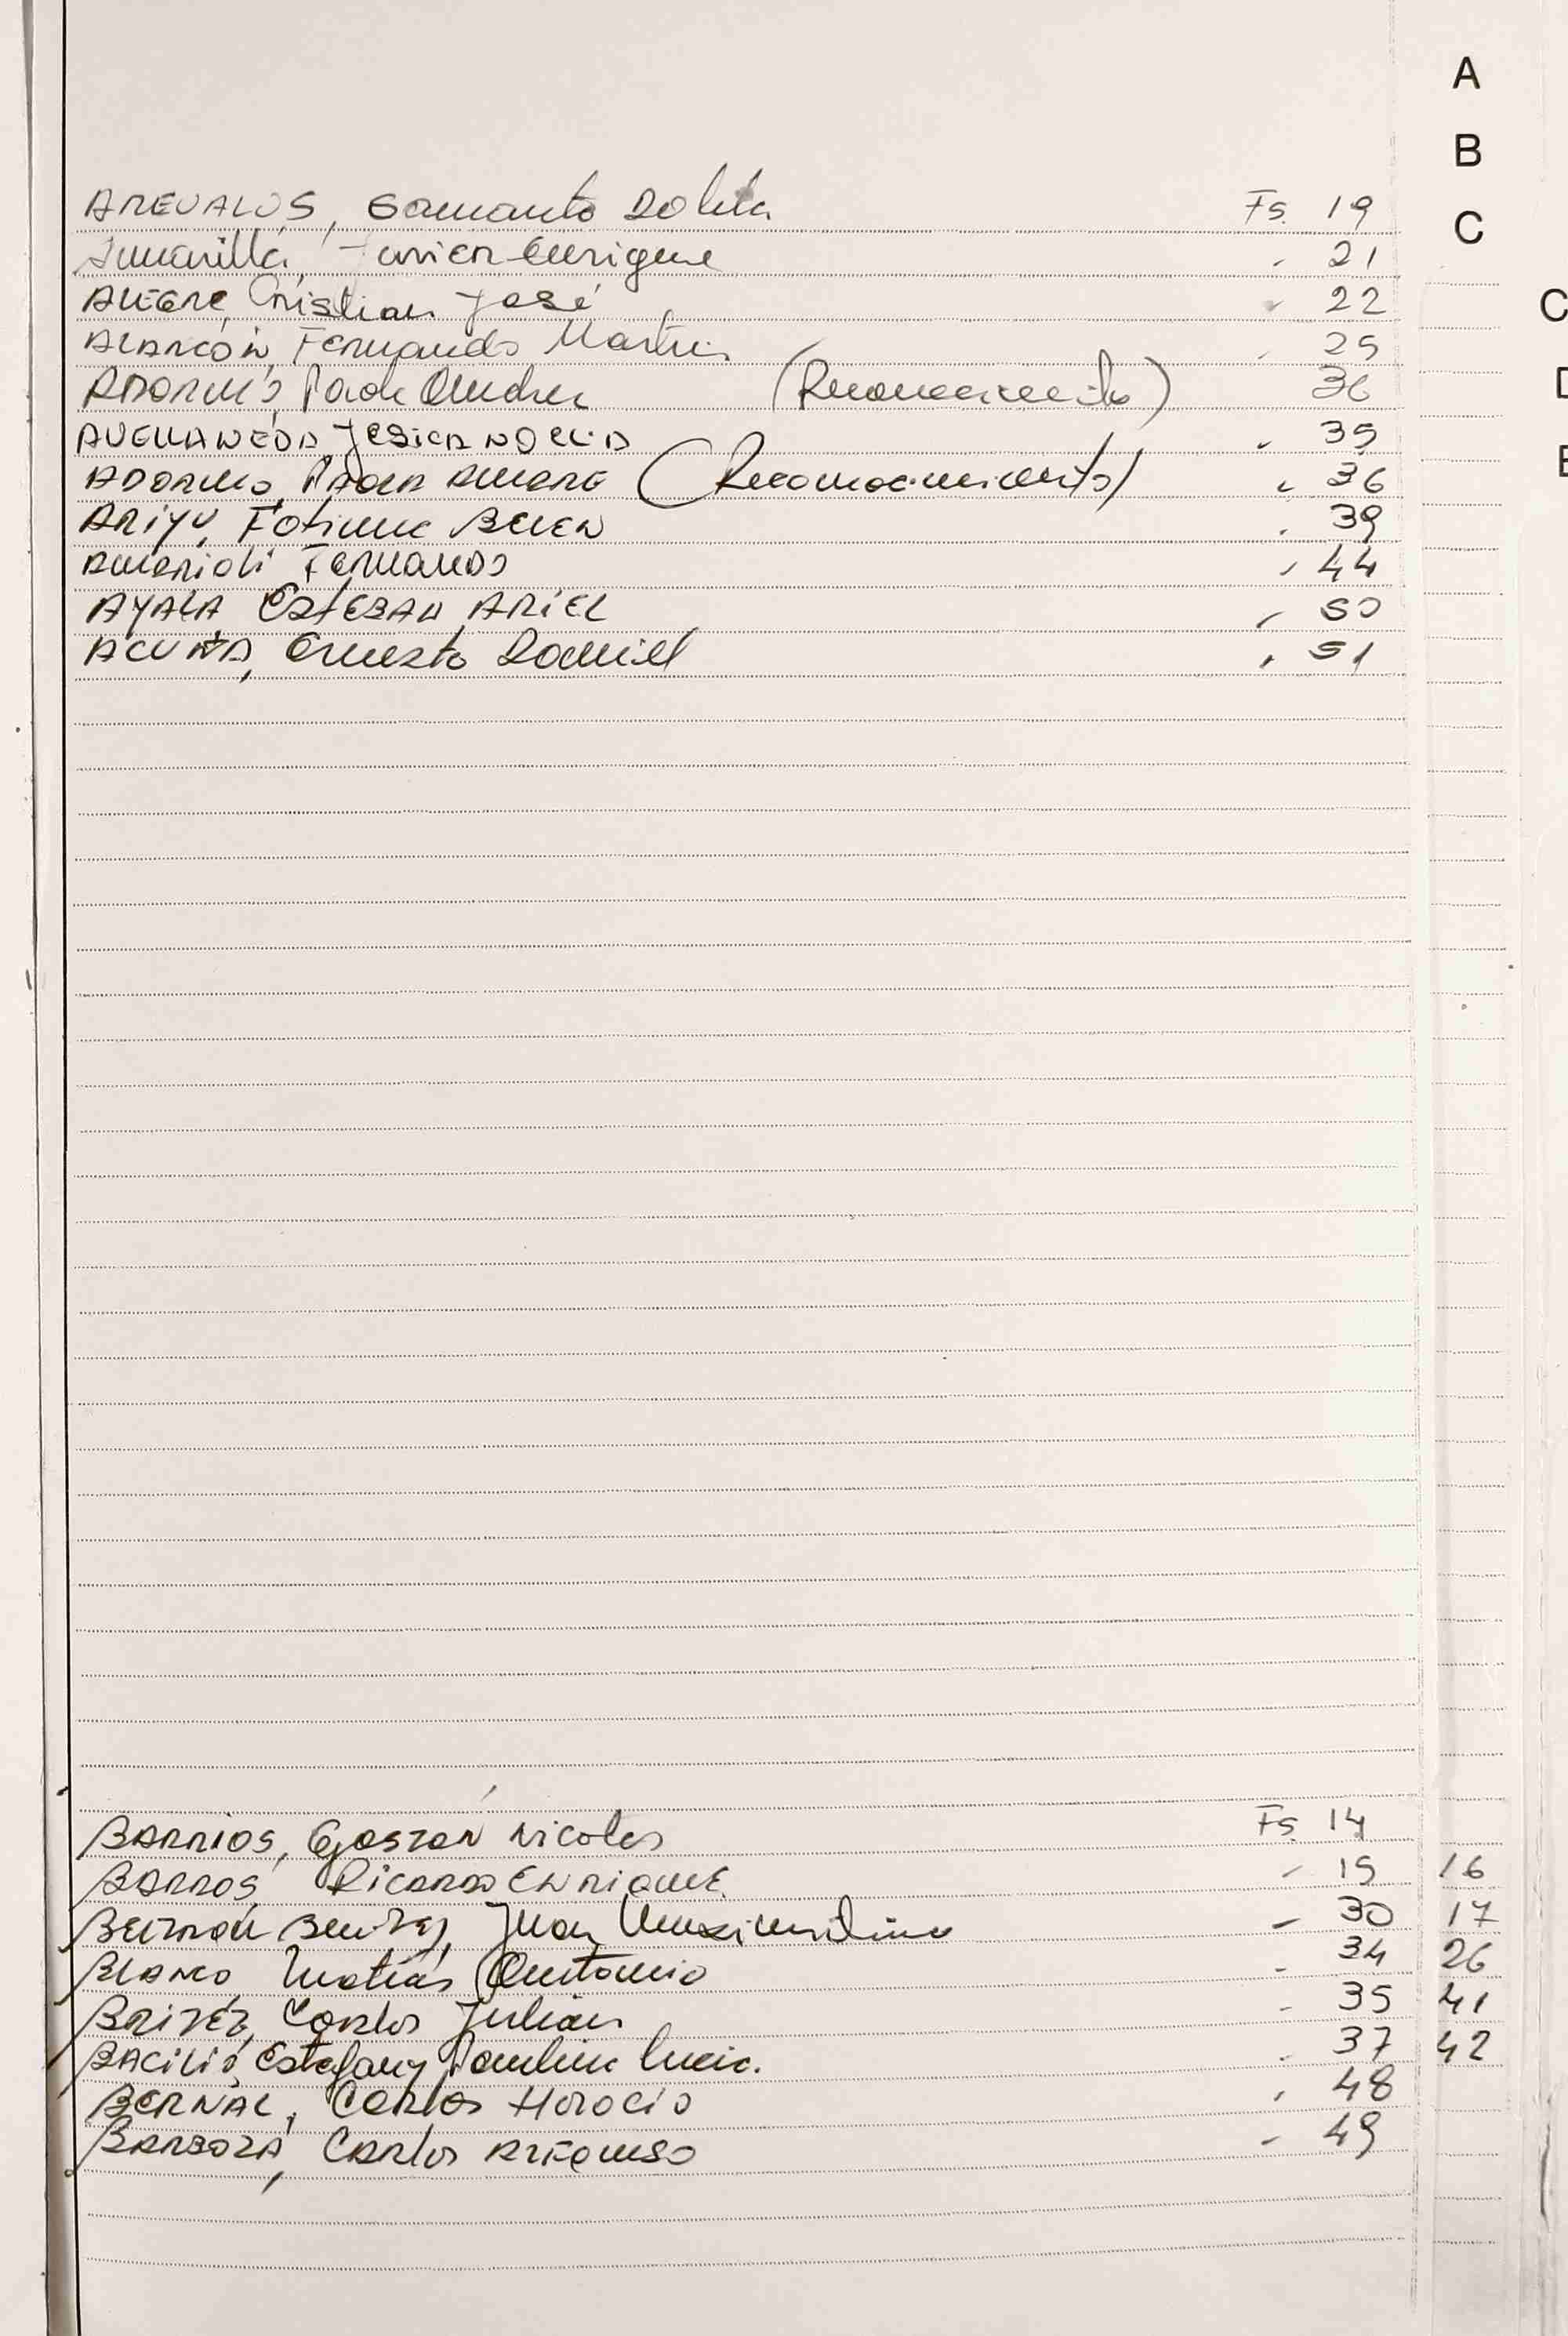 A
B
C
AREVALOS, Samanta Lolita Fs. 19
Amarilla, Javier Enrique 21
ALEGRE, Cristian José 22
ALARCÓN, Fernando Martin 25
ADORNO, Paola Andrea (Reconocimiento) 36
AVELLANEDA Jesica NOELIA 35
ADORNO, PAOLA ANDREA (Reconocimiento) 36
ARIYU, Fatima BELEN 39
Fernando 44
AYALA ESTEBAN ARIEL 50
ACUÑA, Ernesto Daniel 51
BARRIOS, Gaston Nicolas Fs. 14
BARROS Ricardo ENRIQUE 15 16
Juan Maximiliano 30 17
BLANCO Matias Antonio 34 26
BRITEZ, Carlos Julian 35 41
BACILIO, Estefany Paulina Lucia. 37 42
BERNAL, Carlos Horacio 48
BARBOZA, Carlos 49